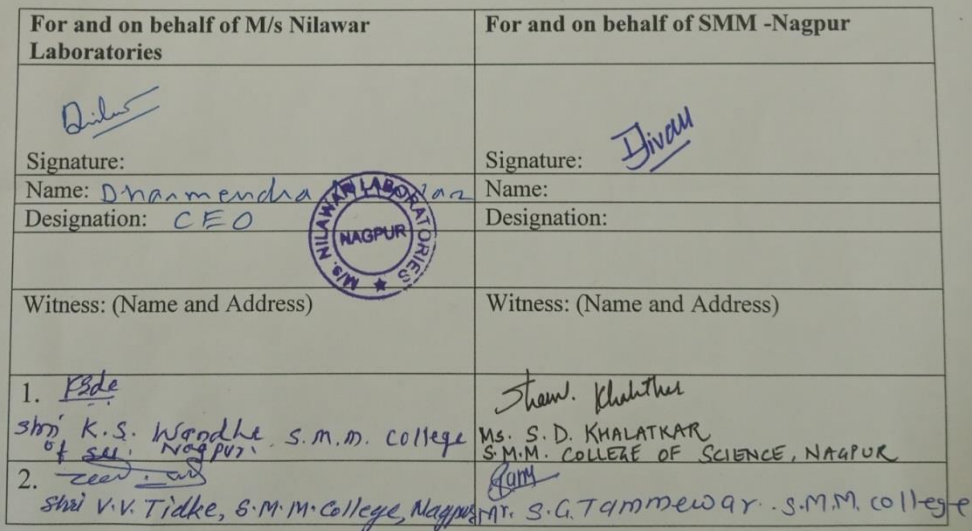 For and on behalf of M/s Nilawar
Laboratories
For and on behalf of SMM -Nagpur
Signature:
Signature: Divan
Name: Dharmendra
Name:
Designation: CEO
Designation:
M/s. NILAWAR LABORATORIES
NAGPUR
Witness: (Name and Address)
Witness: (Name and Address)
1.
Shri K.S. Wandhe S.M.M. College
of Nagpur.
Ms. S. D. KHALATKAR
S.M.M. COLLEGE OF SCIENCE, NAGPUR
2.
Shri V.V. Tidke, S.M.M. College, Nagpur
Mr. S.G. Tammewar. S.M.M. College